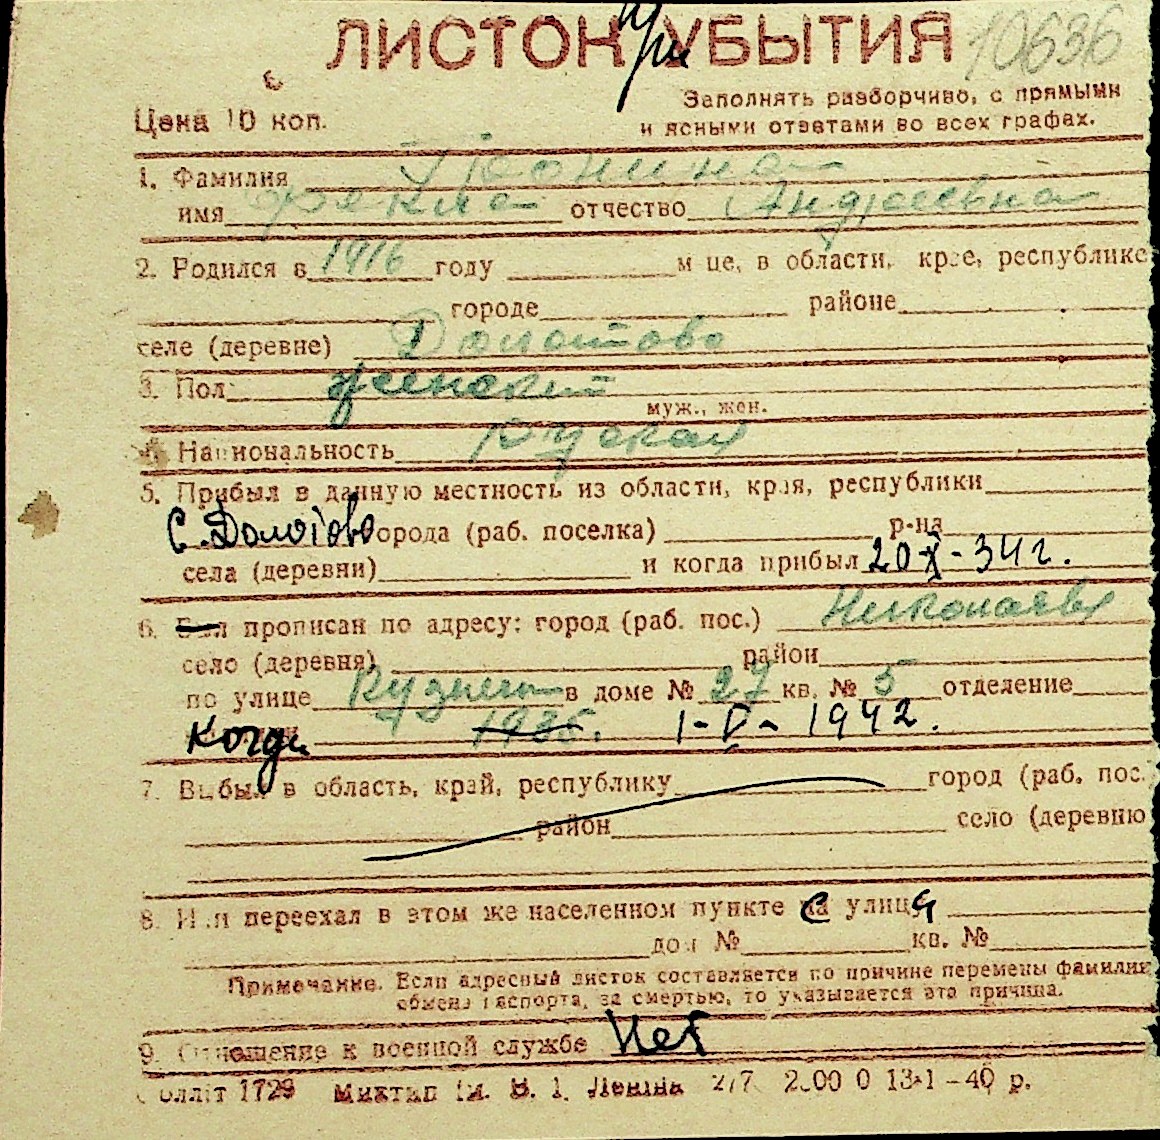 ЛИСТОК УБЫТИЯ 10636
при
Цена 10 коп.
Заполнять разборчиво, с прямыми
и ясными ответами во всех графах.
1. Фамилия Пронина
имя Фекла отчество Андреевна
2. Родился в 1916 году м-це, в области, крае, республике
городе районе
селе (деревне) Долотово
3. Пол женский
муж., жен.
4. Национальность Руская
5. Прибыл в данную местность из области, края, республики
С. Долотово города (раб. поселка) р-на
села (деревни) и когда прибыл 20-X-34 г.
6. Был прописан по адресу: город (раб. пос.) Николаев
село (деревня) район
по улице в доме № 27 кв. № 5 отделение
Когда 1935. 1-V-1942.
7. Выбыл в область, край, республику город (раб. пос.
район село (деревню
8. Или переехал в этом же населенном пункте с улицы
дом № кв. №
Примечание. Если адресный листок составляется по причине перемены фамилии
обмена паспорта, за смертью, то указывается эта причина.
9. Отношение к военной службе Нет
Облліт 1729 Миктип ім. В. І. Леніна 277 2000 0 13-1-40 р.